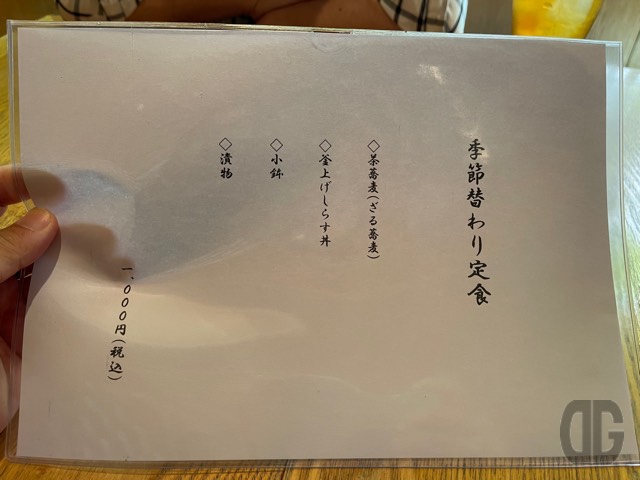 季節替わり定食
◇茶蕎麦(ざる蕎麦)
◇釜上げしらす丼
◇小鉢
◇漬物
一、〇〇〇円(税込)
DG